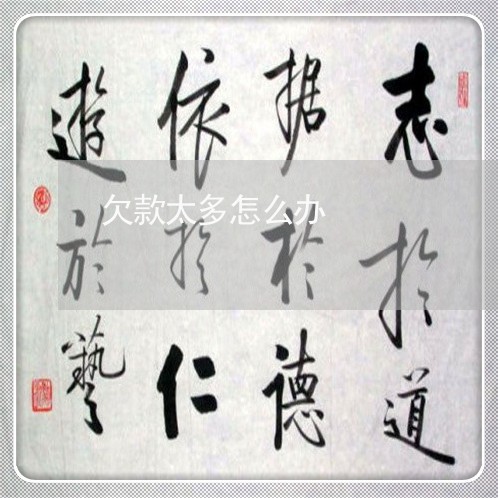 志於道
据於德
依於仁
遊於藝
欠款太多怎么办